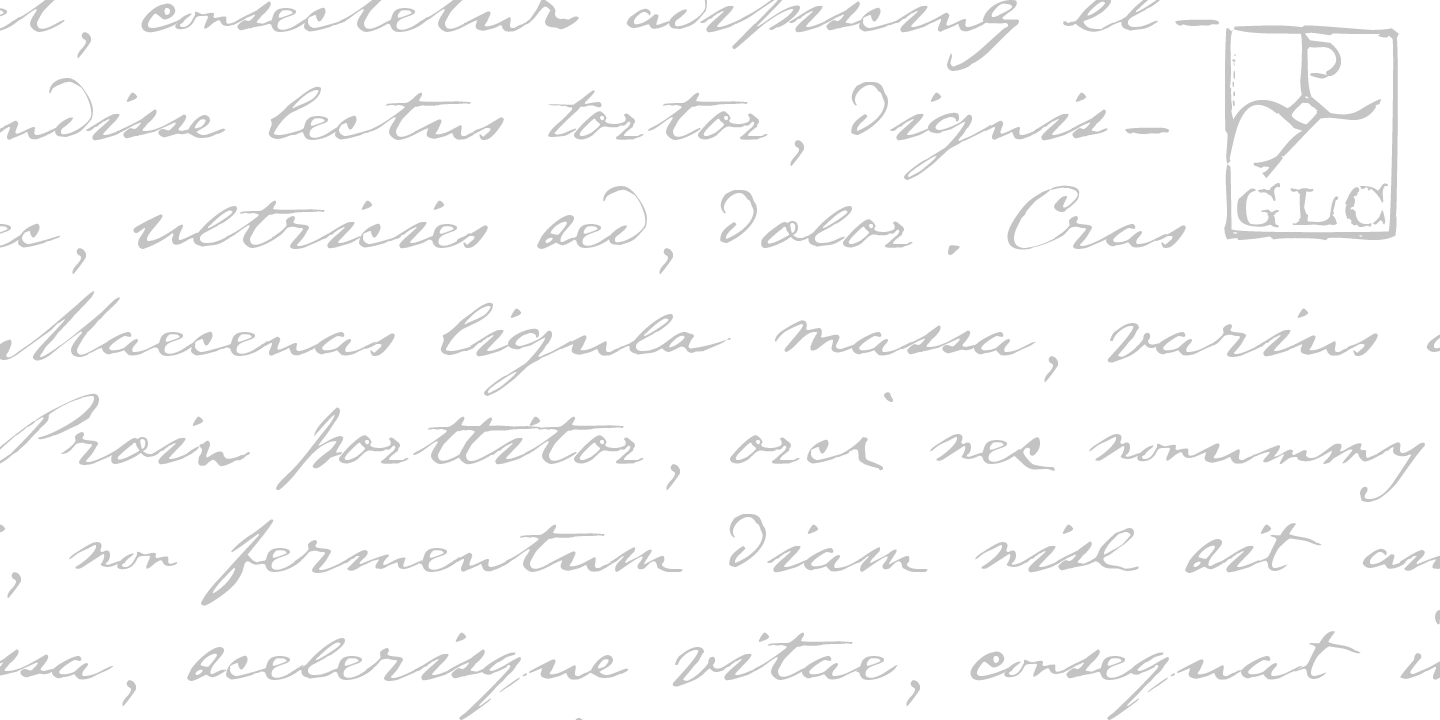 consectetur adipiscing el-
lectus tortor, dignis-
, ultricies sed, dolor. Cras
GLC
Maecenas ligula massa, varius
Proin porttitor, orci nec nonummy
, non fermentum diam nisl sit
, scelerisque vitae, consequat